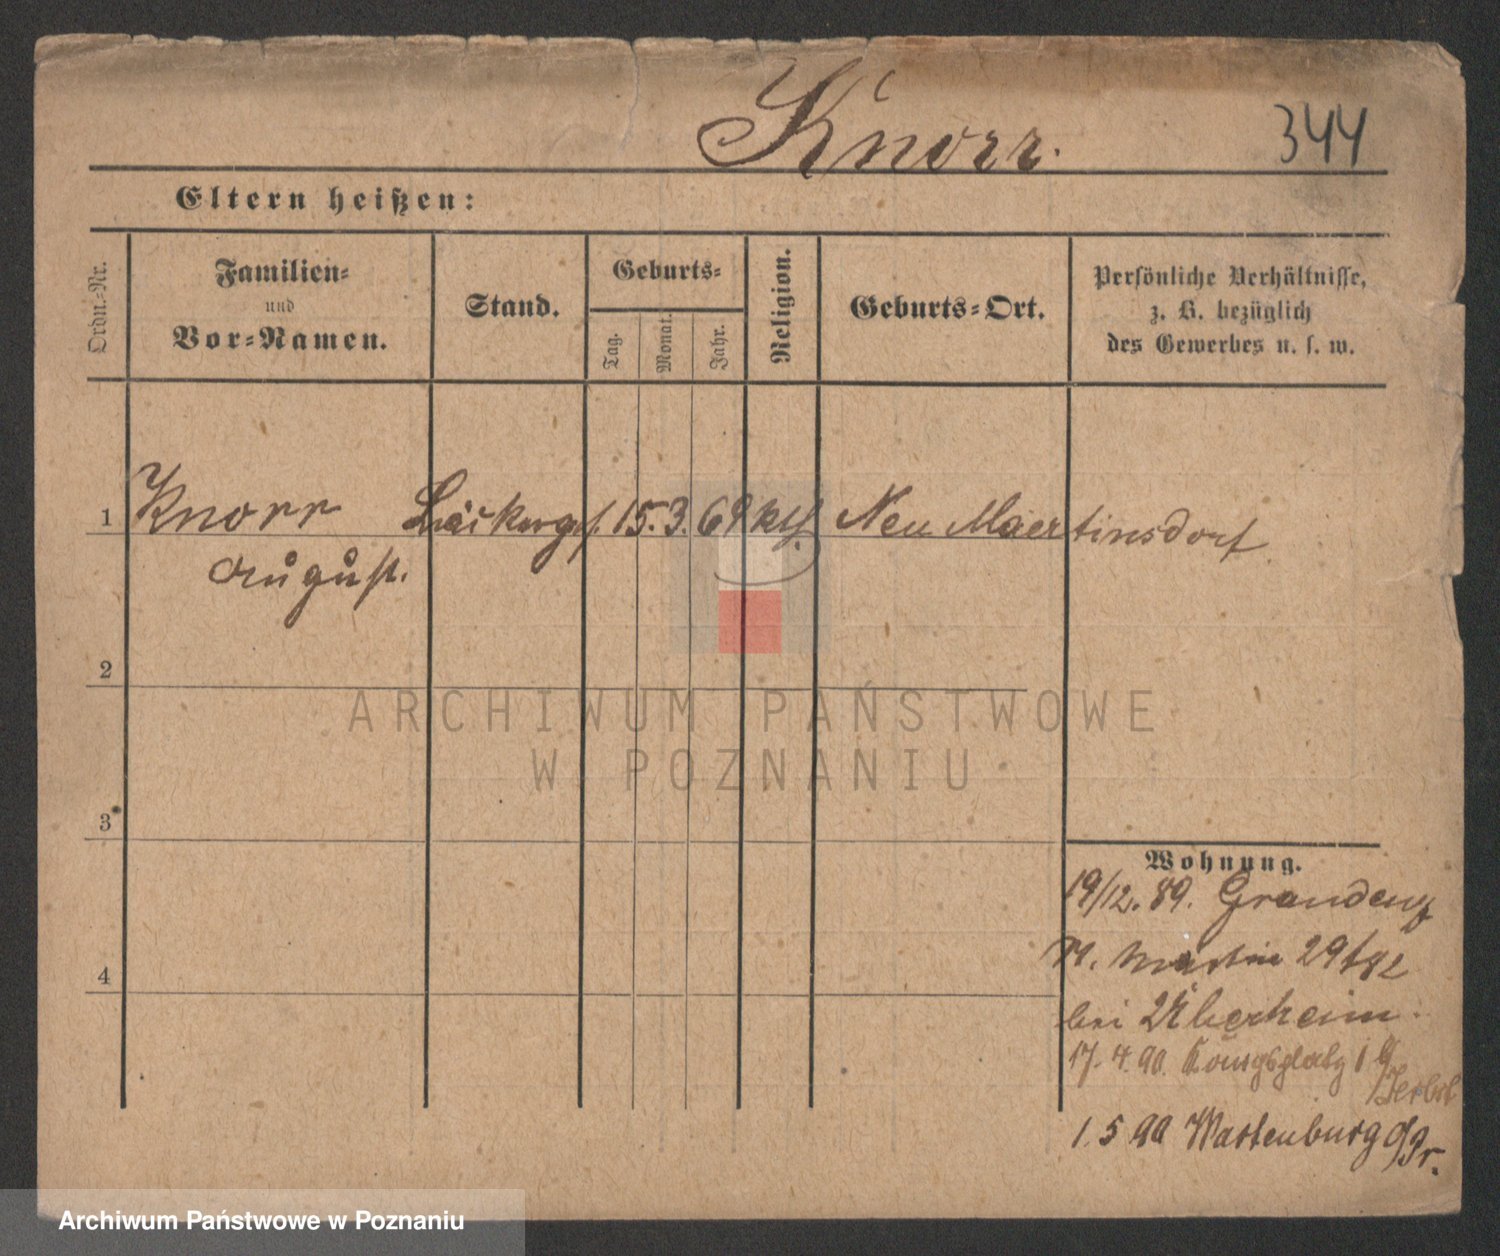 Knorr.
344
Eltern heißen:
Ordn.-Nr.
Familien-
und
Vor-Namen.
Stand.
Geburts-
Tag.
Monat.
Jahr.
Religion.
Geburts-Ort.
Persönliche Verhältnisse,
z. B. bezüglich
des Gewerbes u. s. w.
1 Knorr Bäckerges. 15. 3. 69 kth. Neu Maertinsdorf
August.
2
3
4
ARCHIWUM PAŃSTWOWE
W POZNANIU
Wohnung.
19/12. 89. Graudenz
St. Martin 29
bei
17. 4. 90. Königsplatz
1. 5 90 Wartenburg
Archiwum Państwowe w Poznaniu